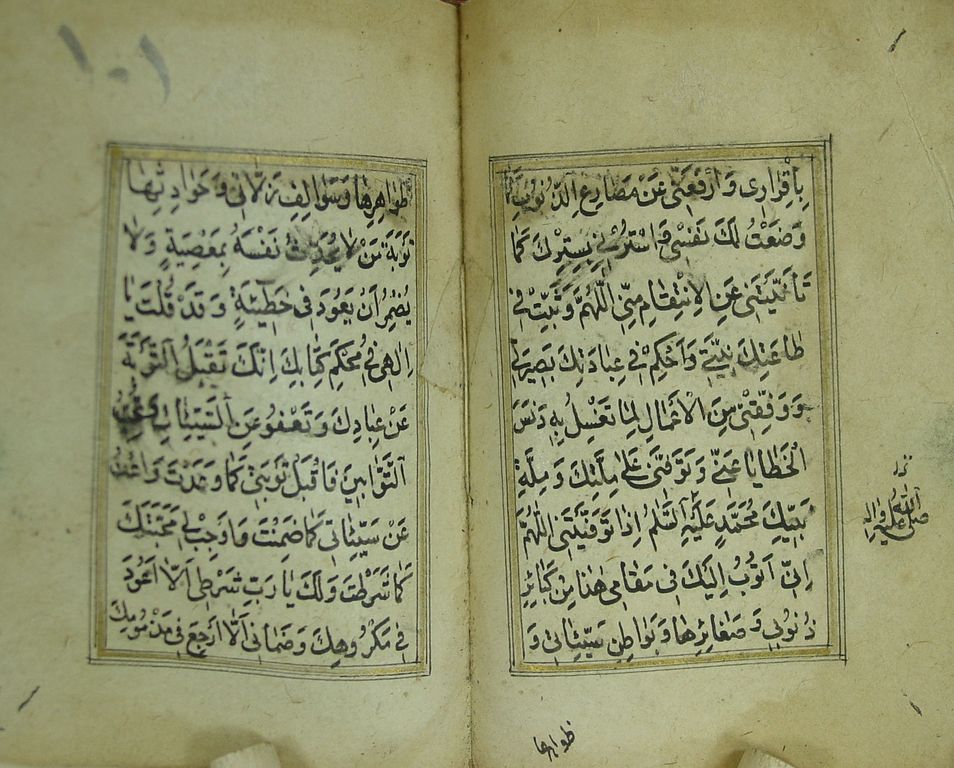 بِاِقْرَارِى وَارْفَعْنِى عَنْ مَصَارِعِ الذُّنُوبِ كَمَا
وَضَعْتُ لَكَ نَفْسِى وَاسْتُرْنِى بِسِتْرِكَ كَمَا
تَأَنَّيْتَنِى عَنِ الاِنْتِقَامِ مِنِّى اَللّٰهُمَّ وَثَبِّتْ فِى
طَاعَتِكَ نِيَّتِى وَاَحْكِمْ فِى عِبَادَتِكَ بَصِيرَتِى
وَوَفِّقْنِى مِنَ الْاَعْمَالِ لِمَا تَغْسِلُ بِهِ دَنَسَ
الْخَطَايَا عَنِّى وَتَوَفَّنِى عَلَى مِلَّتِكَ وَمِلَّةِ
نَبِيِّكَ مُحَمَّدٍ عَلَيْهِ السَّلَمُ اِذَا تَوَفَّيْتَنِى اَللّٰهُمَّ
اِنِّى اَتُوبُ اِلَيْكَ فِى مَقَامِى هٰذَا مِنْ كَبَائِرِ
ذُنُوبِى وَصَغَائِرِهَا وَبَوَاطِنِ سَيِّئَاتِى وَ
صلى الله عليه واله
ظواهرها
١٠١
ظَوَاهِرِهَا وَسَوَالِفِ زَلَّاتِى وَحَوَادِثِهَا
تَوْبَةَ مَنْ لَا يُحَدِّثُ نَفْسَهُ بِمَعْصِيَةٍ وَلَا
يُضْمِرُ اَنْ يَعُودَ فِى خَطِيئَةٍ وَقَدْ قُلْتَ يَا
اِلٰهِى فِى مُحْكَمِ كِتَابِكَ اِنَّكَ تَقْبَلُ التَّوْبَةَ
عَنْ عِبَادِكَ وَتَعْفُو عَنِ السَّيِّئَاتِ وَتُحِبُّ
التَّوَّابِينَ فَاقْبَلْ تَوْبَتِى كَمَا وَعَدْتَ وَاعْفُ
عَنْ سَيِّئَاتِى كَمَا ضَمِنْتَ وَاَوْجِبْ لِى مَحَبَّتَكَ
كَمَا شَرَطْتَ وَلَكَ يَا رَبِّ شَرْطِى اَلَّا اَعُودَ
فِى مَكْرُوهِكَ وَضَمَانِى اَلَّا اَرْجِعَ فِى مَذْمُومِكَ